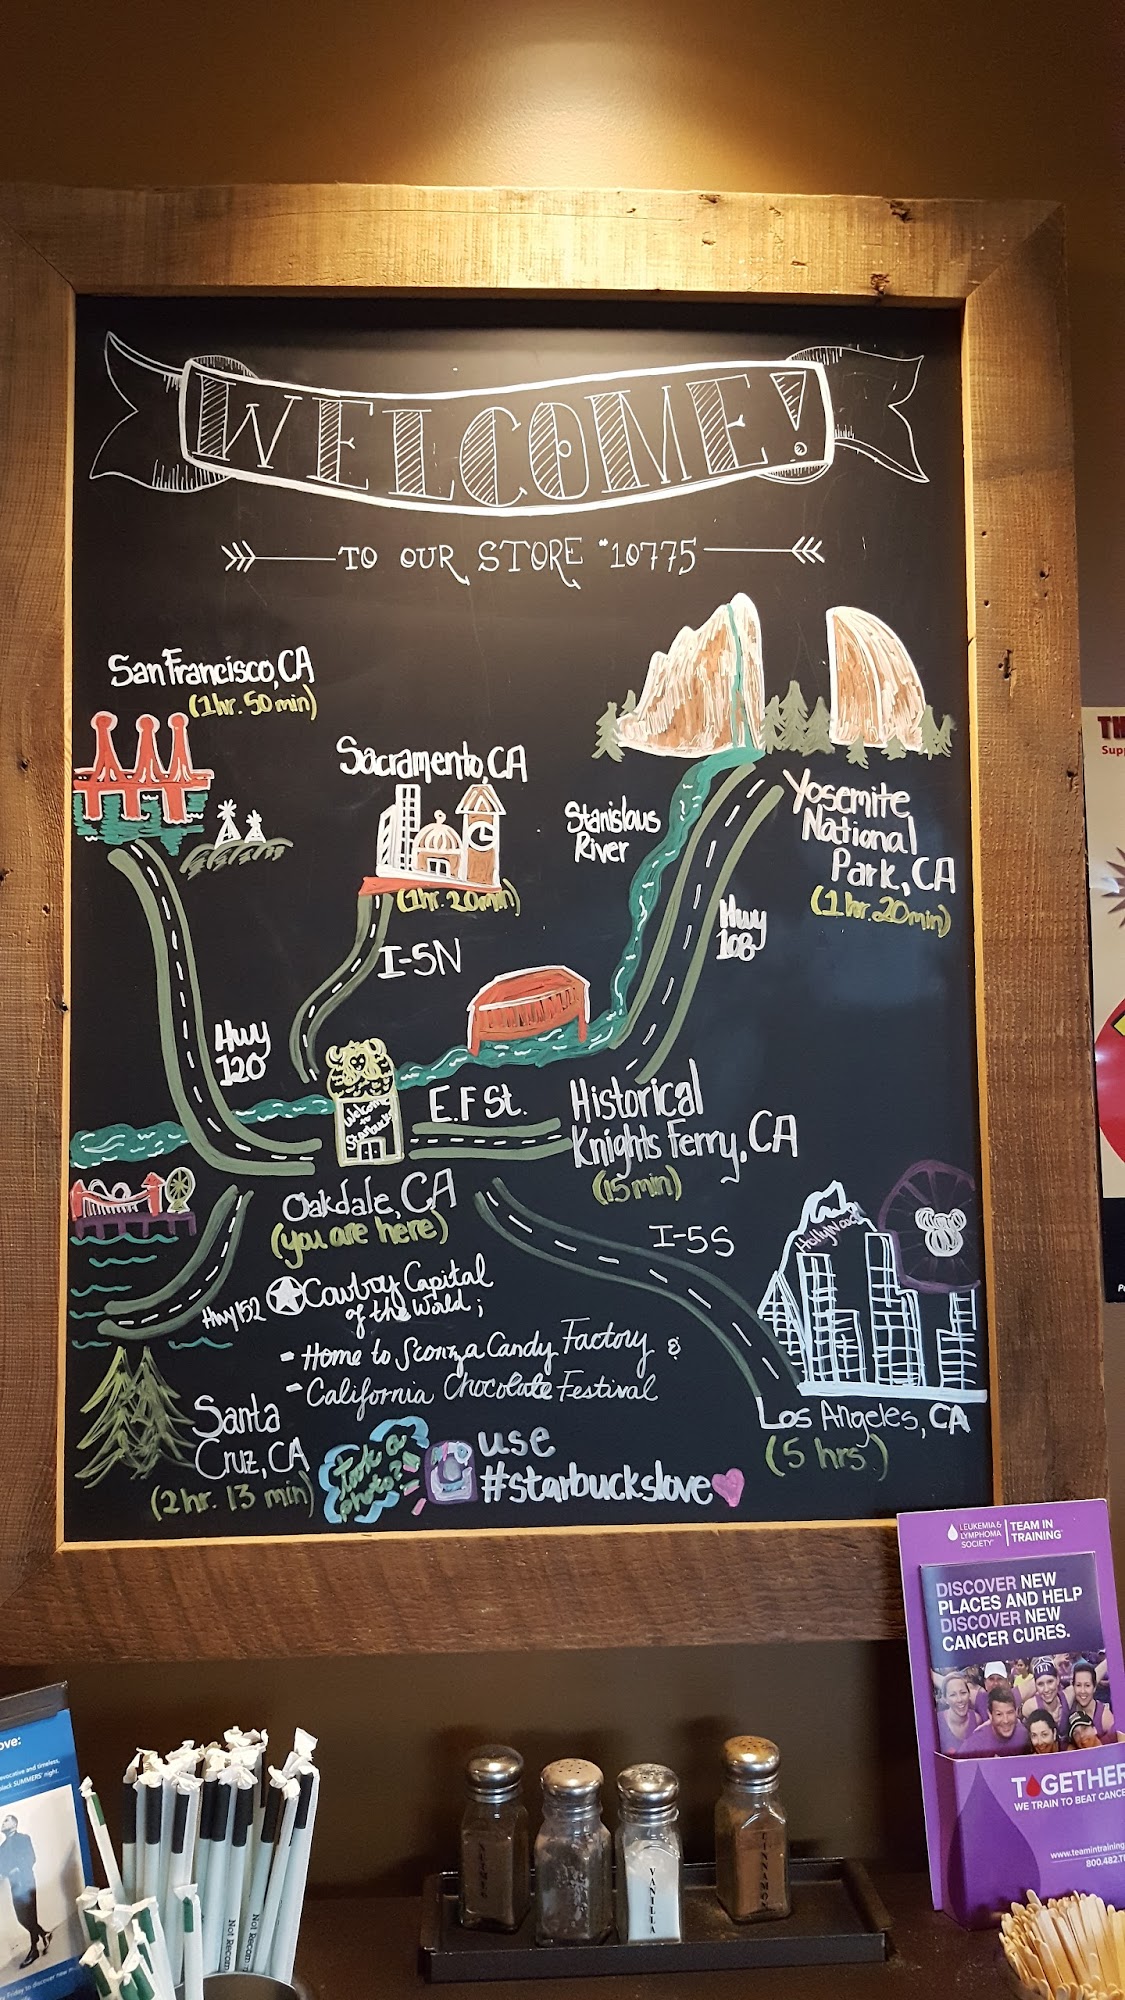 WELCOME!
TO OUR STORE #10775
San Francisco, CA
(1hr. 50min)
Sacramento, CA
(1hr. 20min)
Stanislaus
River
Yosemite
National
Park, CA
(1hr. 20min)
Hwy
108
I-5N
Hwy
120
Welcome
to
Starbucks
E.F St.
Historical
Knights Ferry, CA
(15 min)
Oakdale, CA
(you are here)
I-5S
HollyWood
Hwy 152
Cowboy Capital
of the World;
- Home to Sconza Candy Factory &
- California Chocolate Festival
Los Angeles, CA
(5 hrs.)
Santa
Cruz, CA
(2hr. 13 min)
took a
photo?
use
#starbuckslove
LEUKEMIA &
LYMPHOMA
SOCIETY
TEAM IN
TRAINING
DISCOVER NEW
PLACES AND HELP
DISCOVER NEW
CANCER CURES.
TOGETHER
WE TRAIN TO BEAT CANCE
www.teamintraining
800.482.T
NUTMEG
VANILLA
CINNAMON
Not Recom